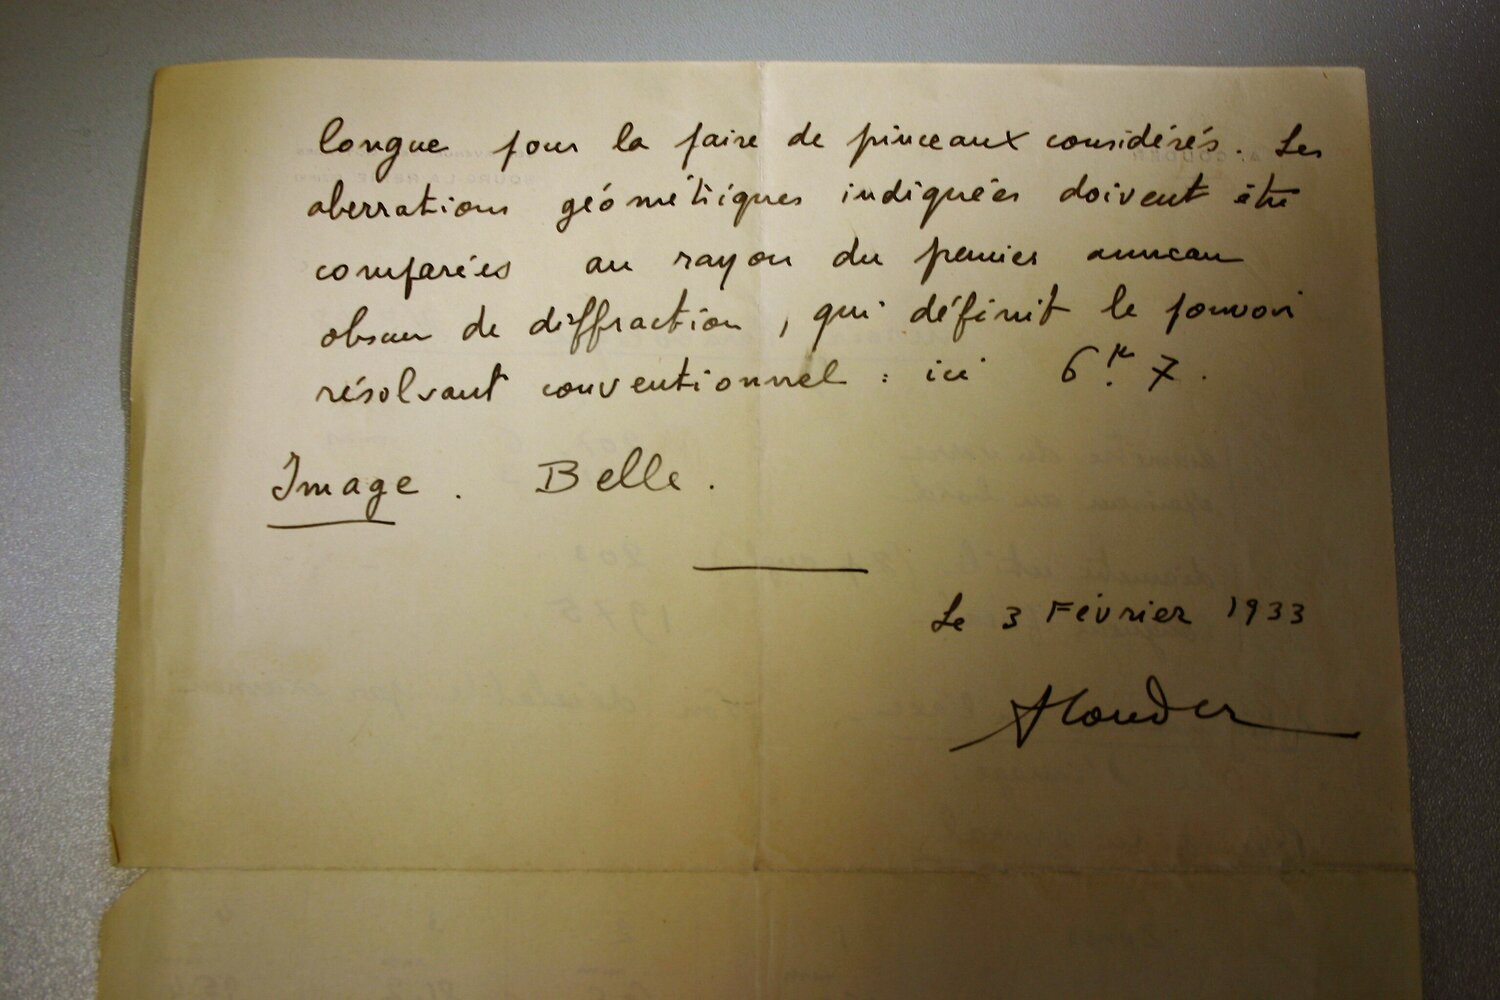 longue pour la paire de pinceaux considérés. Les
aberrations géométriques indiquées doivent être
comparées au rayon du premier anneau
obscur de diffraction, qui définit le pouvoir
résolvant conventionnel : ici 6μ.7.
Image. Belle.
Le 3 Février 1933
ACouder